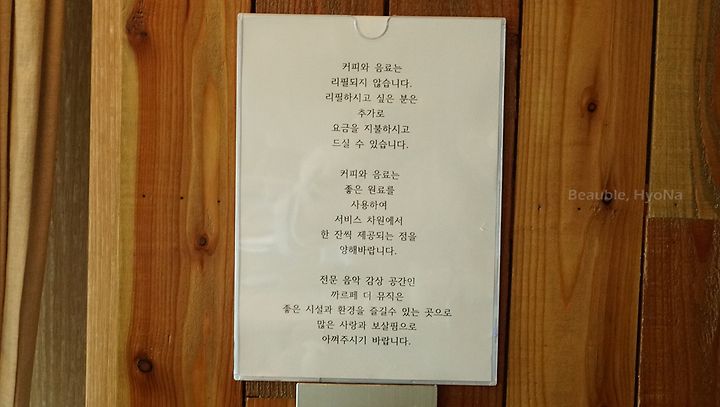 커피와 음료는
리필되지 않습니다.
리필하시고 싶은 분은
추가로
요금을 지불하시고
드실 수 있습니다.
커피와 음료는
좋은 원료를
사용하여
서비스 차원에서
한 잔씩 제공되는 점을
양해바랍니다.
전문 음악 감상 공간인
까르페 디 뮤직은
좋은 시설과 환경을 즐길수 있는 곳으로
많은 사랑과 보살핌으로
아껴주시기 바랍니다.
Beauble, HyoNa